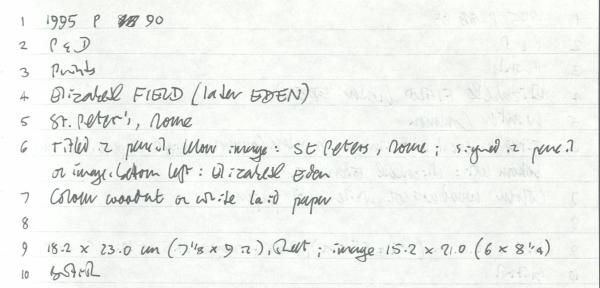 1 1995 P 90
2 P & D
3 Prints
4 Elizabeth FIELD (later EDEN)
5 St. Peter's, Rome
6 Titled in pencil, below image: St Peters, Rome; signed in pencil
on image bottom left: Elizabeth Eden
7 Colour woodcut on white laid paper
8
9 18.2 x 23.0 cm (7 1/8 x 9 in), sheet; image: 15.2 x 21.0 (6 x 8 1/4)
10 British